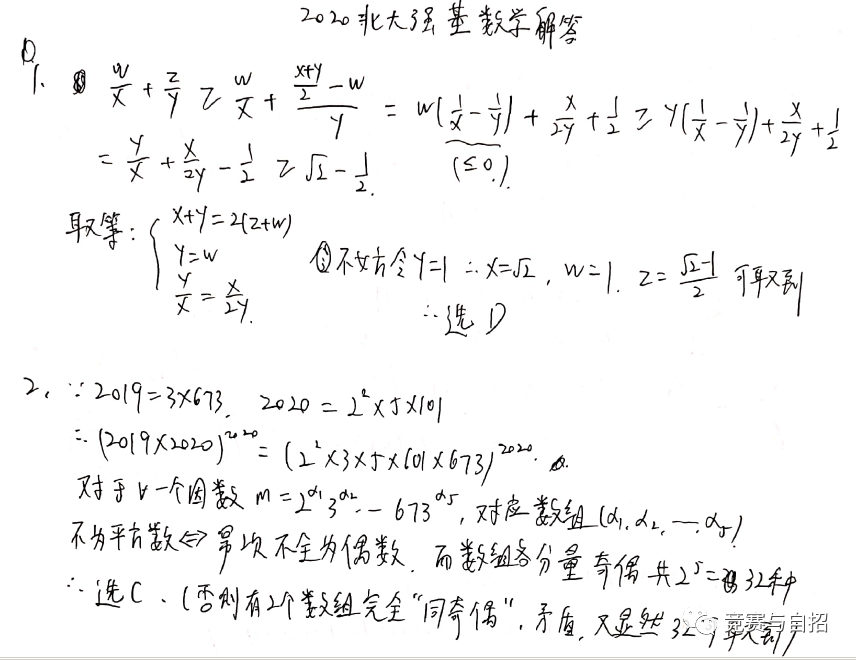 2020北大强基数学解答
1. w/x + z/y ≥ w/x + ((x+y)/2 - w)/y = w(1/x - 1/y) + x/2y + 1/2 ≥ y(1/x - 1/y) + x/2y + 1/2
(≤0.)
= y/x + x/2y - 1/2 ≥ √2 - 1/2.
取等: { x+y=2(z+w)
y=w
y/x = x/2y.
不妨令y=1 ∴x=√2, w=1. z=(√2-1)/2 可取到
∴选D
2. ∵2019=3×673. 2020=2²×5×101
∴(2019×2020)^2020=(2²×3×5×101×673)^2020.
对于∀一个因数 m=2^α1 3^α2 … 673^α5, 对应数组(α1, α2, …, α5)
不为平方数⇔幂次不全为偶数. 而数组各分量奇偶共2^5=32种
∴选C. (否则有2个数组完全"同奇偶", 矛盾, 又显然32可取到)
竞赛与自招